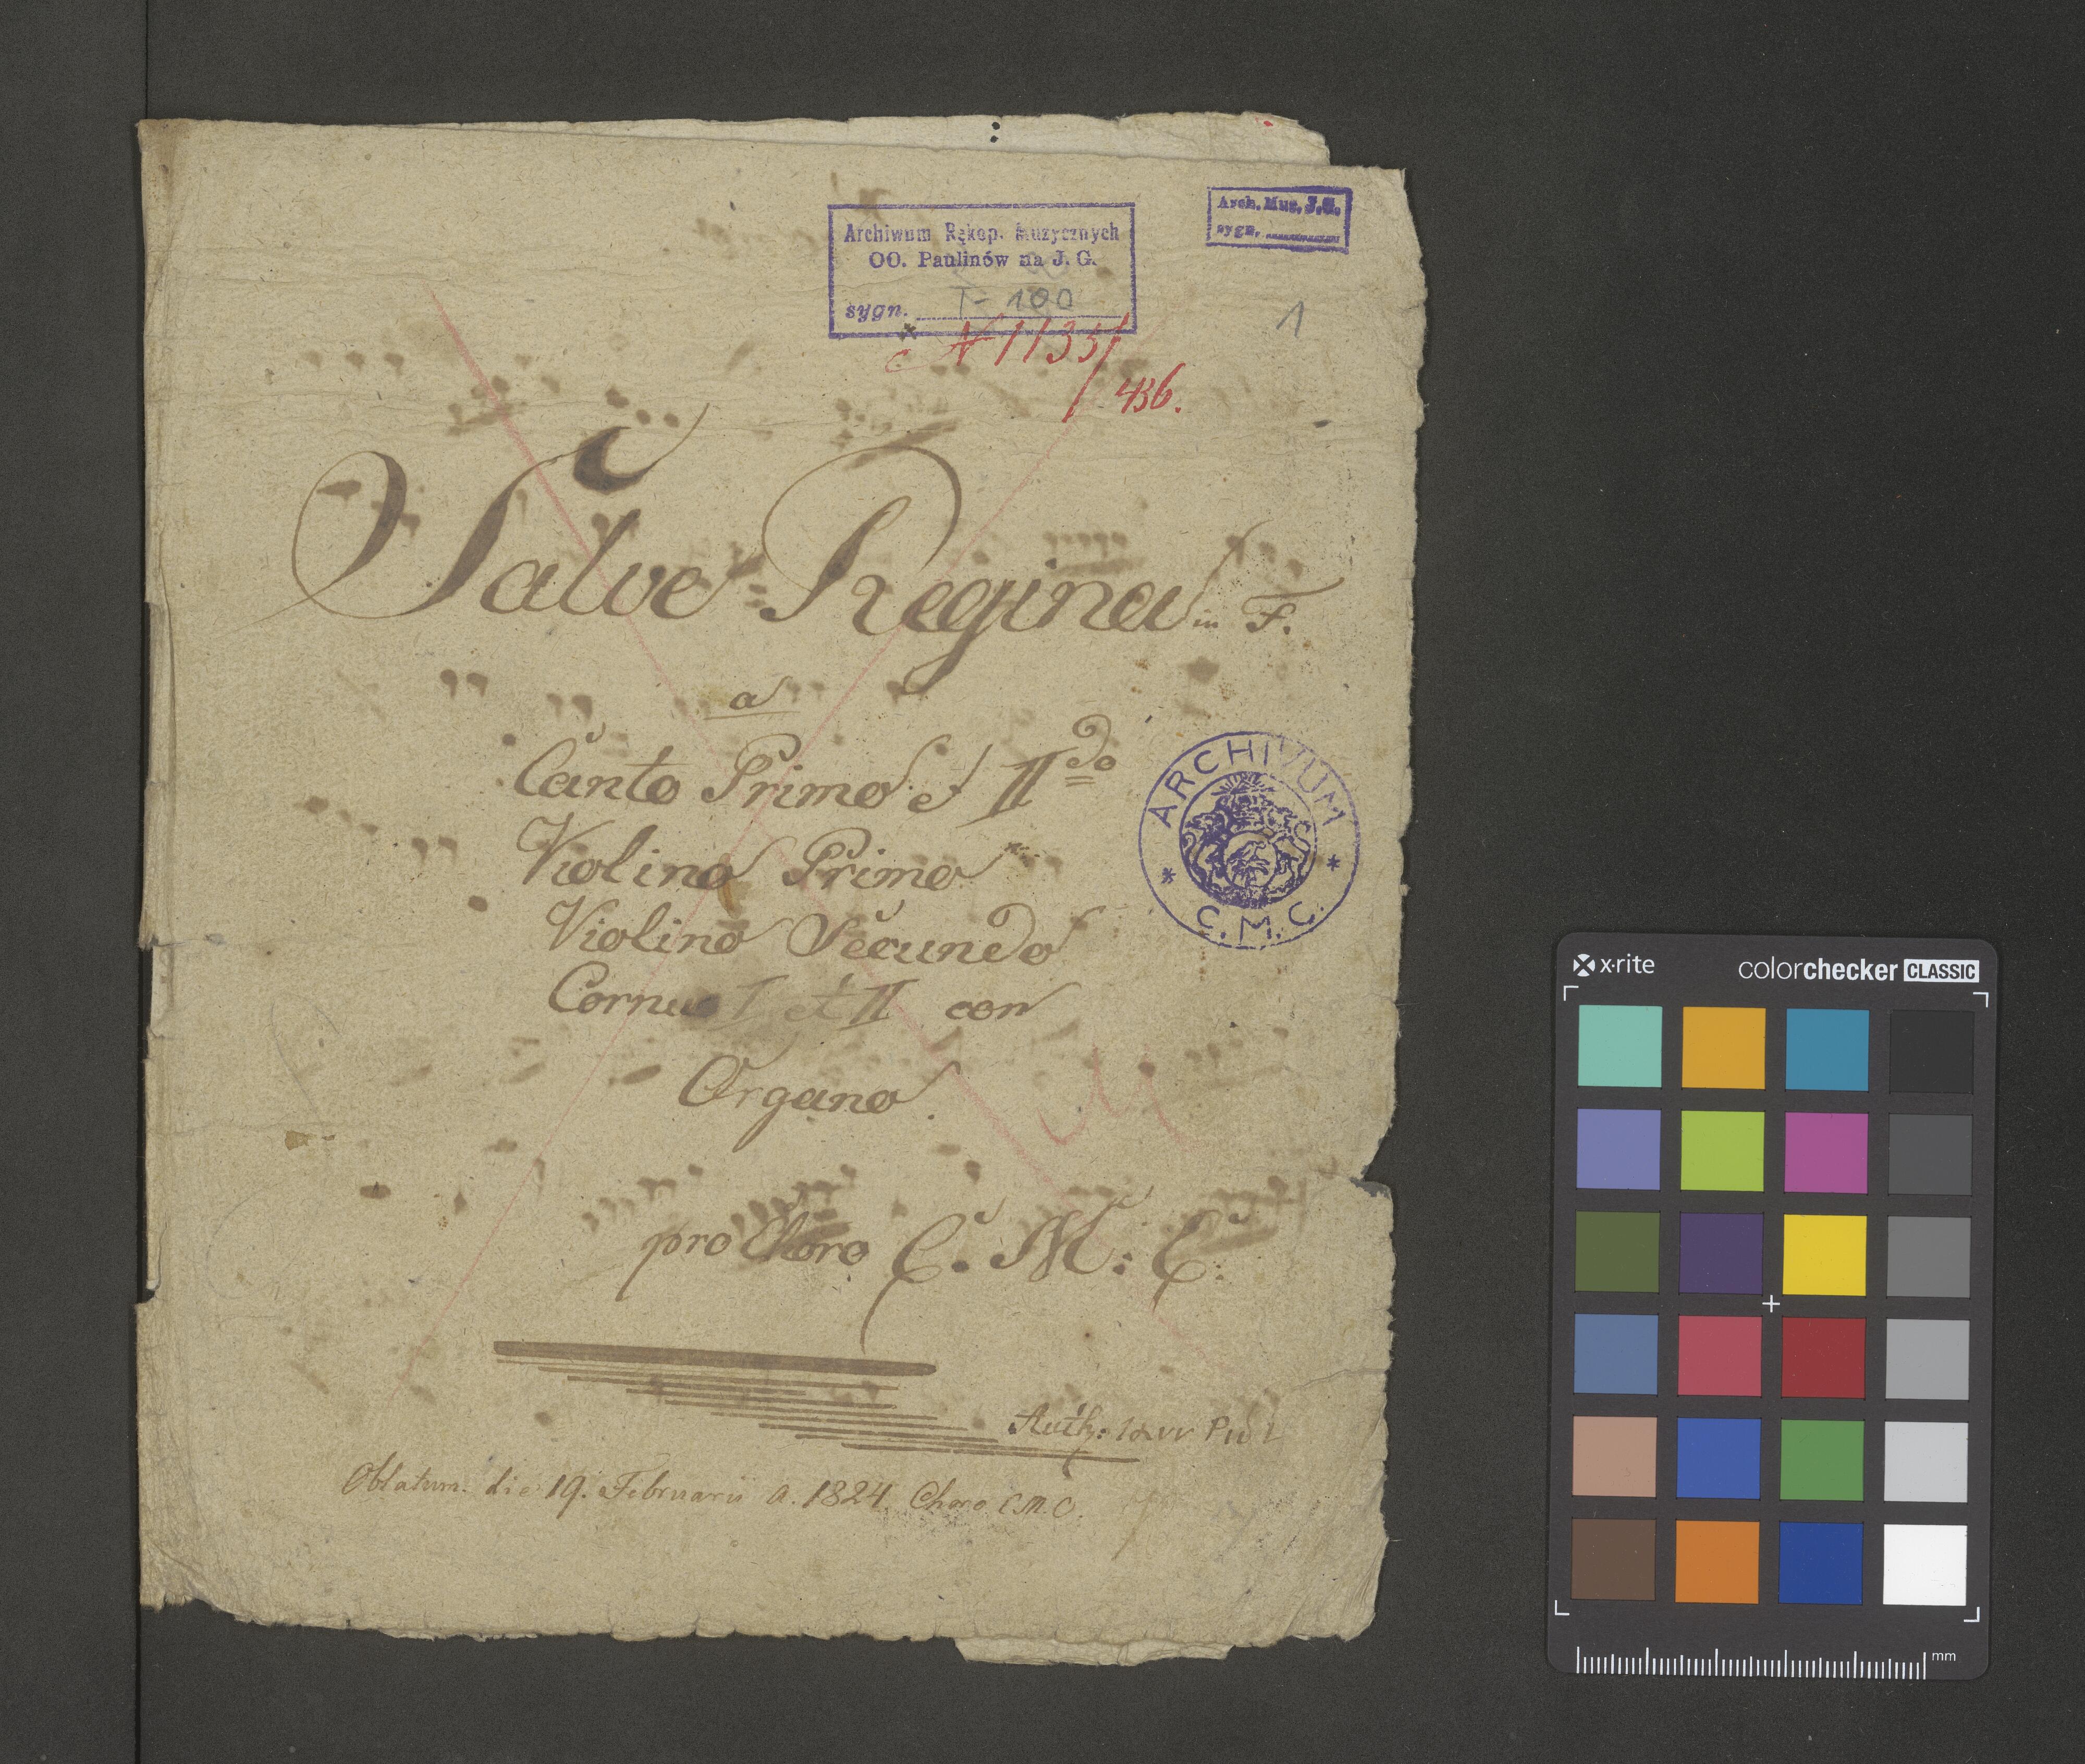 Archiwum Rękop. Muzycznych
OO. Paulinów na J. G.
sygn. I-100
Arch. Mus. J.G.
sygn.
1
N 1135/
436.
Salve Regina in F.
a
Canto Primo et II do
Violino Primo
Violino Secundo
Cornuo I et II con
Organo.
ARCHIVUM
* C.M.C. *
pro Choro C. M: C:
Auth:
Oblatum die 19. Februarii a. 1824. Choro C.M.C.
x-rite
colorchecker CLASSIC
mm